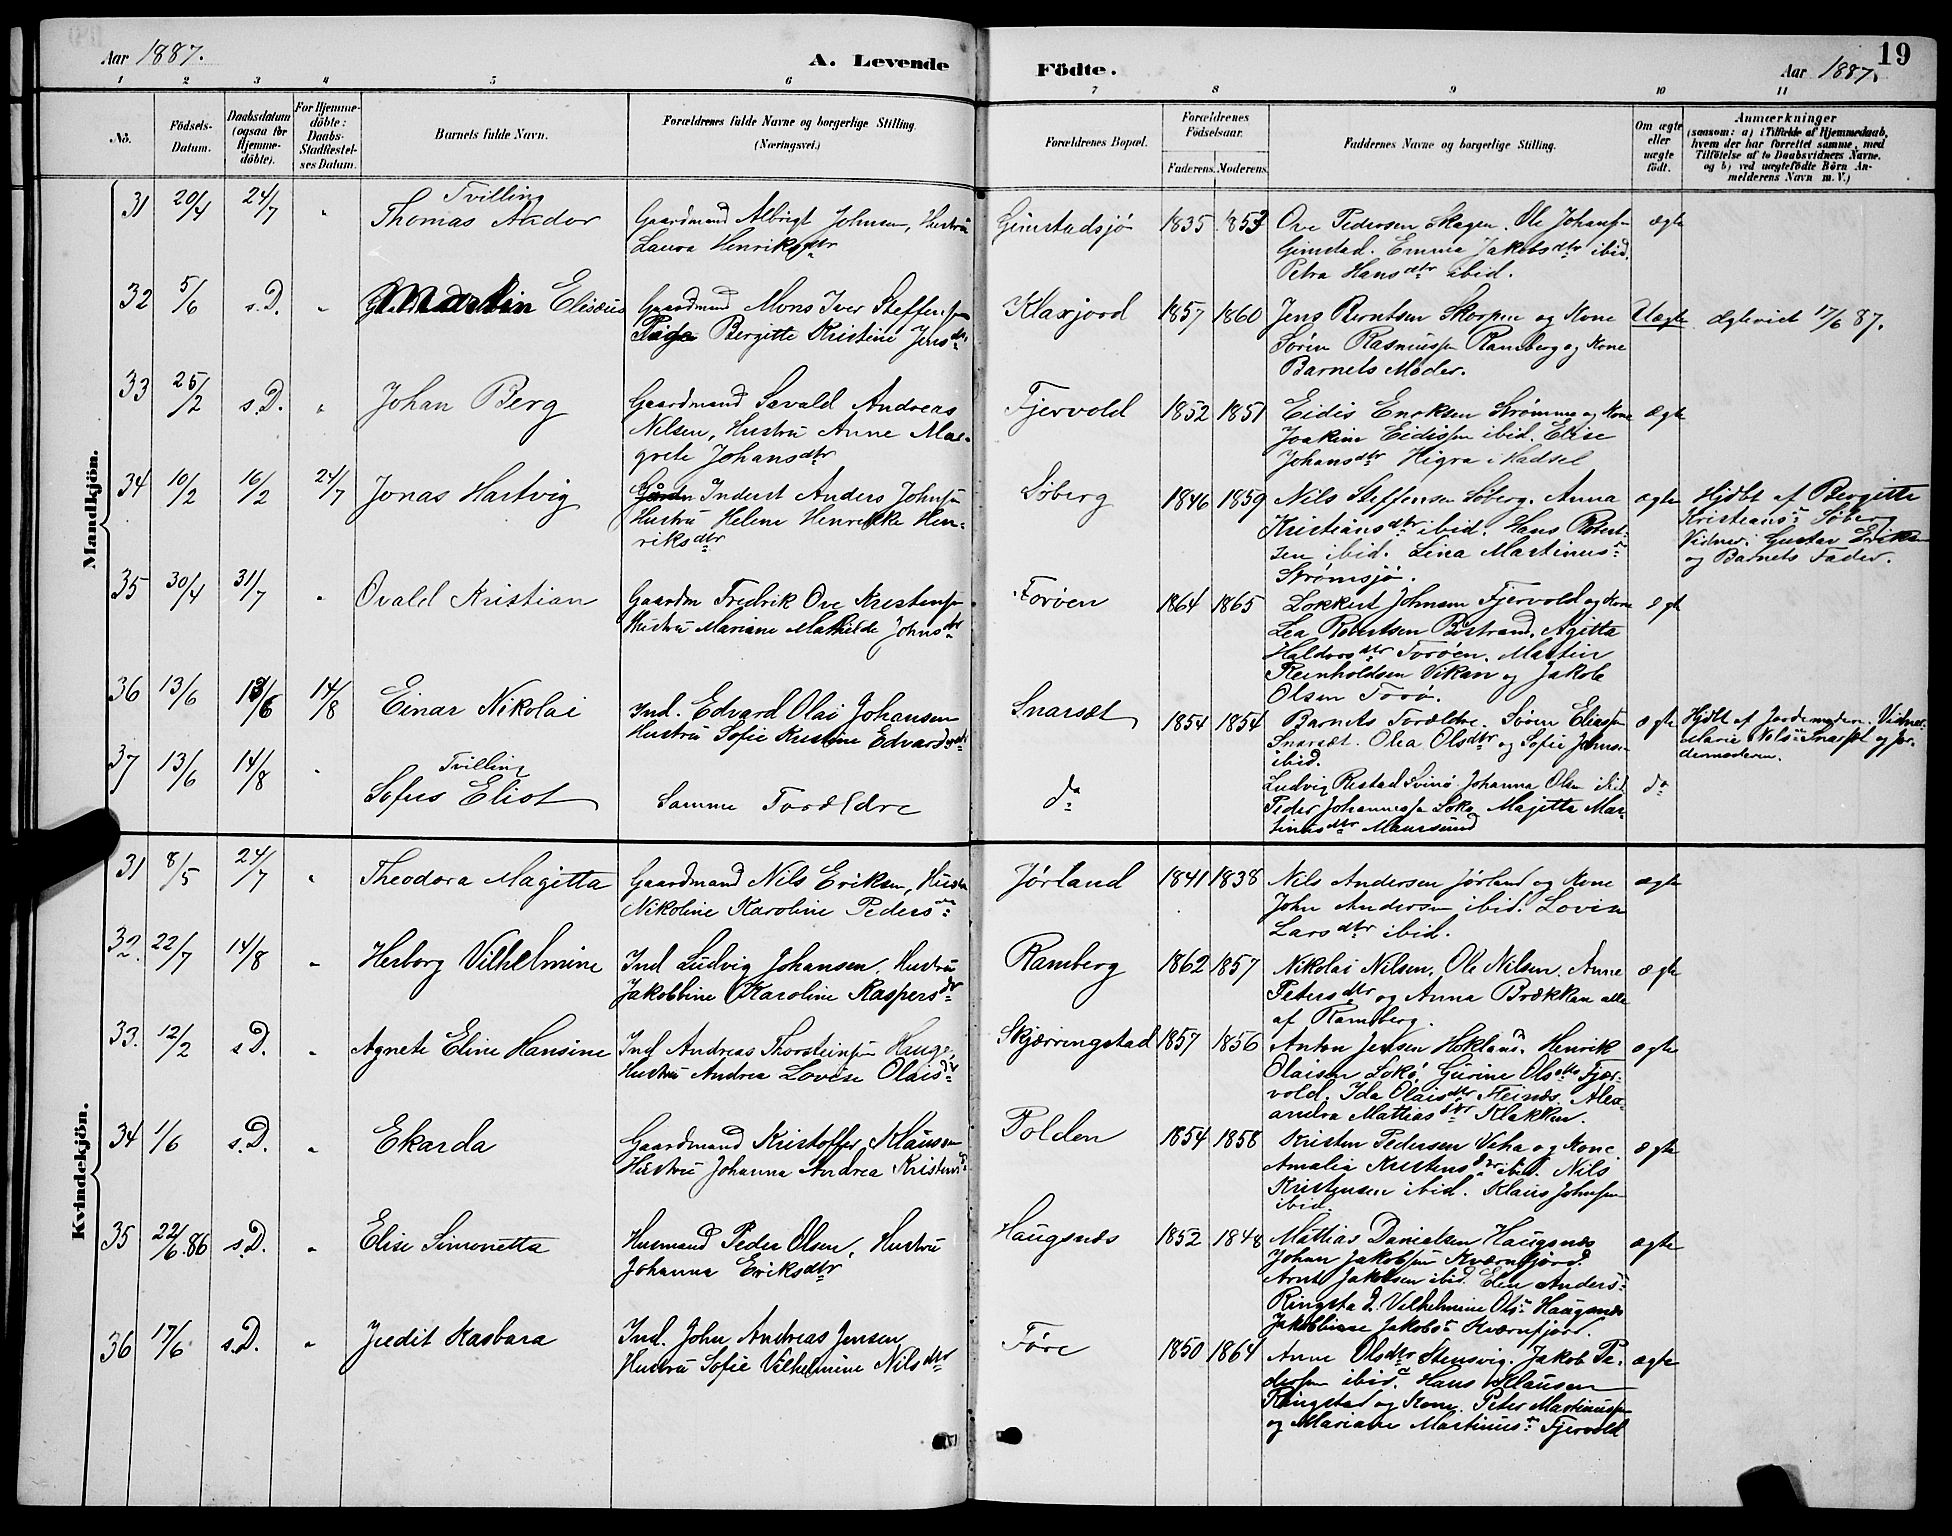 Aar 1887.
A. Levende
Födte.
Aar 1887.
19
1 2 3 4 5 6 7 8 9 10 11
Nö.
Födsels-Datum.
Daabsdatum (ogsaa for Hjemme-döbte).
For Hjemme-döbte: Daabs-Stadfæstel-ses Datum.
Barnets fulde Navn.
Forældrenes fulde Navne og borgerlige Stilling.
(Næringsvei.)
Forældrenes Bopæl.
Forældrenes Födselsaar.
Faderens. Moderens.
Faddernes Navne og borgerlige Stilling.
Om ægte eller uægte födt.
Anmærkninger
(saasom: a) i Tilfælde af Hjemmedaab,
hvem der har forrettet samme, med
Tilföielse af to Daabsvidners Navne,
og b) ved uægtefödte Börn An-
melderens Navn m. V.)
Mandkjön.
31 20/4 24/7 "
Tvilling
Thomas Andor
Gaardmand Albrigt Johnsen, Hustru
Laura Henriksdtr
Gimstadsjø 1835 1853
Ove Pedersen Skagen. Ole Johansen
Gimstad. Emma Jakobsdtr ibid.
Petra Hansdtr ibid.
ægte
32 5/6 s.D. "
Martin Elisæus
Gaardmand Mons Iver Steffensen
Pige Bergitte Kristine Jensdtr
Klaxjord 1857 1860
Jens Berntsen Skorpen og Kone
Sören Rasmussen Ramberg og Kone
Barnets Moder.
Uægte
ægteviet 17/6 87.
33 25/2 s.D. "
Johan Berg
Gaardmand Savald Andreas
Nilsen, Hustru Anne Mar-
grete Johansdtr
Fjervold 1852 1851
Eidis Eriksen Strømme og Kone
Joakim Eidissen ibid. Elise
Johansdtr Higra i Hadsel
ægte
34 10/2 16/2 24/7
Jonas Hartvig
Inderst Anders Johnsen
Hustru Helene Henrikke Hen-
riksdtr
Søberg 1846 1859
Nils Steffensen Søberg. Anna
Kristiansdtr ibid. Hans Robert-
sen ibid. Lina Martinus
Strømsjø.
ægte
Hjdbt af Bergitte
Kristians Søberg
Vidner: Gustav Eriksen
og Barnets Fader.
35 30/4 31/7 "
Ovald Kristian
Gaardm Fredrik Ove Kristensen
Hustru Mariane Mathilde Johnsdtr
Forøen 1864 1865
Lokkert Johnsen Fjervold og Kone
Lea Robertsen Bostrand. Agitta
Haldorsdtr Forøen. Martin
Reinholdsen Vikan og Jakob
Olsen Forø.
ægt
36 13/6 13/6 14/8
Einar Nikolai
Ind. Edvard Olai Johansen
Hustru Sofie Kristine Edvardsdtr
Snarset 1854 1854
Barnets Forældre. Søren Eliassen
Snarset. Olea Olsdtr og Sofie Johns
ibid.
ægte
Hjdbt af Jordemoderen. Vidner
Marie Nils Snarset og Jor-
demoderen.
37 13/6 14/8 "
Tvilling
Sofus Eliot
Samme Forældre
do
Ludvig Restad Svinø. Johanna Olsn ibid
Peder Johannessen Sokø. Majetta Mar-
tinusdtr Maursund
do
Kvindekjön.
31 8/5 24/7 "
Theodora Magitta
Gaardmand Nils Eriksen, Hustru
Nikoline Karoline Peders
Jørland 1841 1838
Nils Andersen Jørland og Kone
John Andersen ibid. Lovise
Larsdtr ibid.
ægte
32. 22/7 14/8 "
Herborg Vilhelmine
Ind Ludvig Johansen. Hustru
Jakobbine Karoline Kaspersdtr
Ramberg 1862 1857
Nikolai Nilsen. Ole Nilsen. Anne
Petersdtr og Anna Brækkan alle
af Ramberg.
ægte
33. 12/2 s.D. "
Agnete Eline Hansine
Ind Andreas Thorsteinsen Hauge,
Hustru Andrea Lovise Olaisdtr
Skjærringstad 1857 1856
Anton Jensen Hokland. Henrik
Olaisen Sokø. Gurine Olsdtr Fjær-
vold. Ida Olaisdtr Steinæs. Alex-
andra Mattiasdtr Klakken.
ægte
34 1/6 s.D. "
Ekarda
Gaardmand Kristoffer Klausen
Hustru Johanna Andrea Kristens
Folden 1854 1858
Kristen Pedersen Veha og Kone.
Amalia Kristensdtr ibid. Nils
Kristensen ibid. Klaus Johnsen
ibid.
ægte
35 22/6.86 s.D. "
Elise Simonetta
Husmand Peder Olsen, Hustru
Johanna Eriksdtr
Haugsnes 1852 1848
Mattias Danielsen Haugsnes
Johan Jakobsen Kværnfjord.
Arnt Jakobsen ibid. Elen Anders
Ringstad. Vilhelmine Ols Haugsnes
Jakobbine Jakobs Kværnfjord.
ægte
36 17/6 s.D. "
Judit Kasbara
Ind. John Andreas Jensen
Hustru Sofie Vilhelmine Nilsdtr
Føre 1850 1864
Anne Olsdtr Stensvig. Jakob Pe-
dersen ibid. Hans Klausen
Ringstad og Kone. Peter Martinussen
og Mariane Martinus Fjervold
ægte